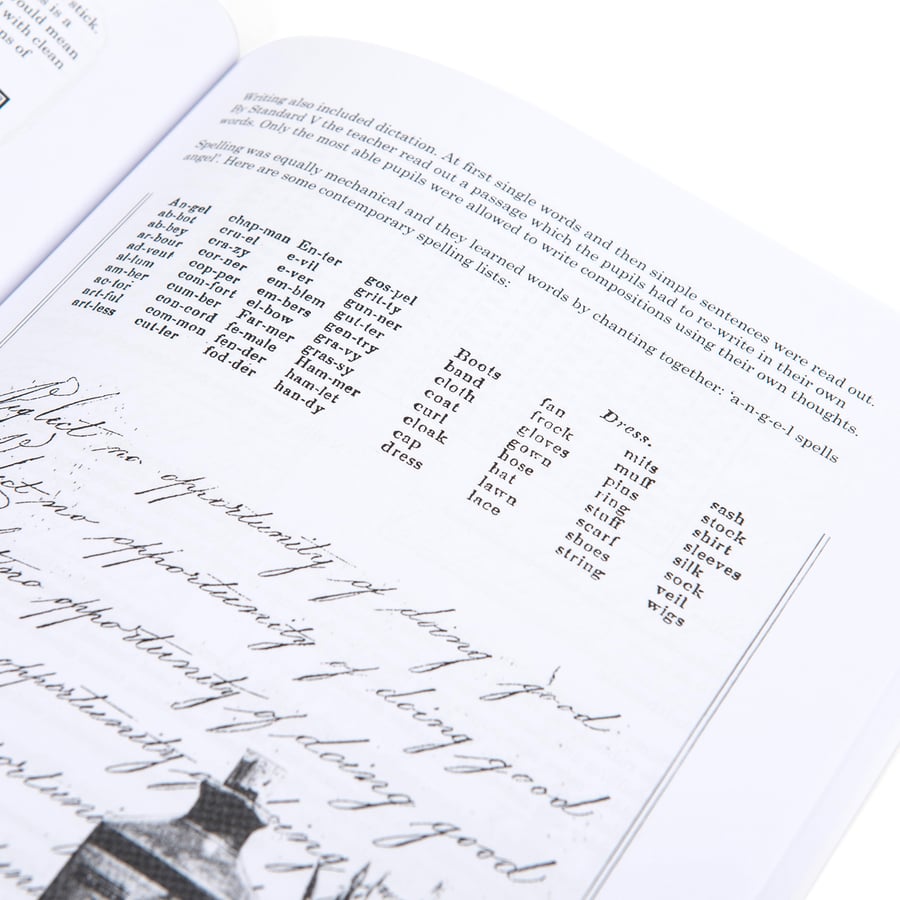 stick.
is a
mean
with clean
of
Writing also included dictation. At first single words and then simple sentences were read out.
By Standard V the teacher read out a passage which the pupils had to re-write in their own
words. Only the most able pupils were allowed to write compositions using their own thoughts.
Spelling was equally mechanical and they learned words by chanting together: 'a-n-g-e-l spells
angel'. Here are some contemporary spelling lists:
An-gel
ab-bot
ab-bey
ar-bour
ad-vent
al-lum
am-ber
ac-tor
art-ful
art-less
chap-man
cru-el
cra-zy
cor-ner
cop-per
com-fort
cum-ber
con-cord
com-mon
cut-ler
En-ter
e-vil
e-ver
em-blem
em-bers
el-bow
Far-mer
fe-male
fen-der
fod-der
gos-pel
grit-ty
gun-ner
gut-ter
gen-try
gra-vy
gras-sy
Ham-mer
ham-let
han-dy
Dress.
Boots
band
cloth
coat
curl
cloak
cap
dress
fan
frock
gloves
gown
hose
hat
lawn
lace
mits
muff
pins
ring
stuff
scarf
shoes
string
sash
stock
shirt
sleeves
silk
sock
veil
wigs
Neglect no opportunity of doing good
no opportunity of doing good
no opportunity of doing good
opportunity